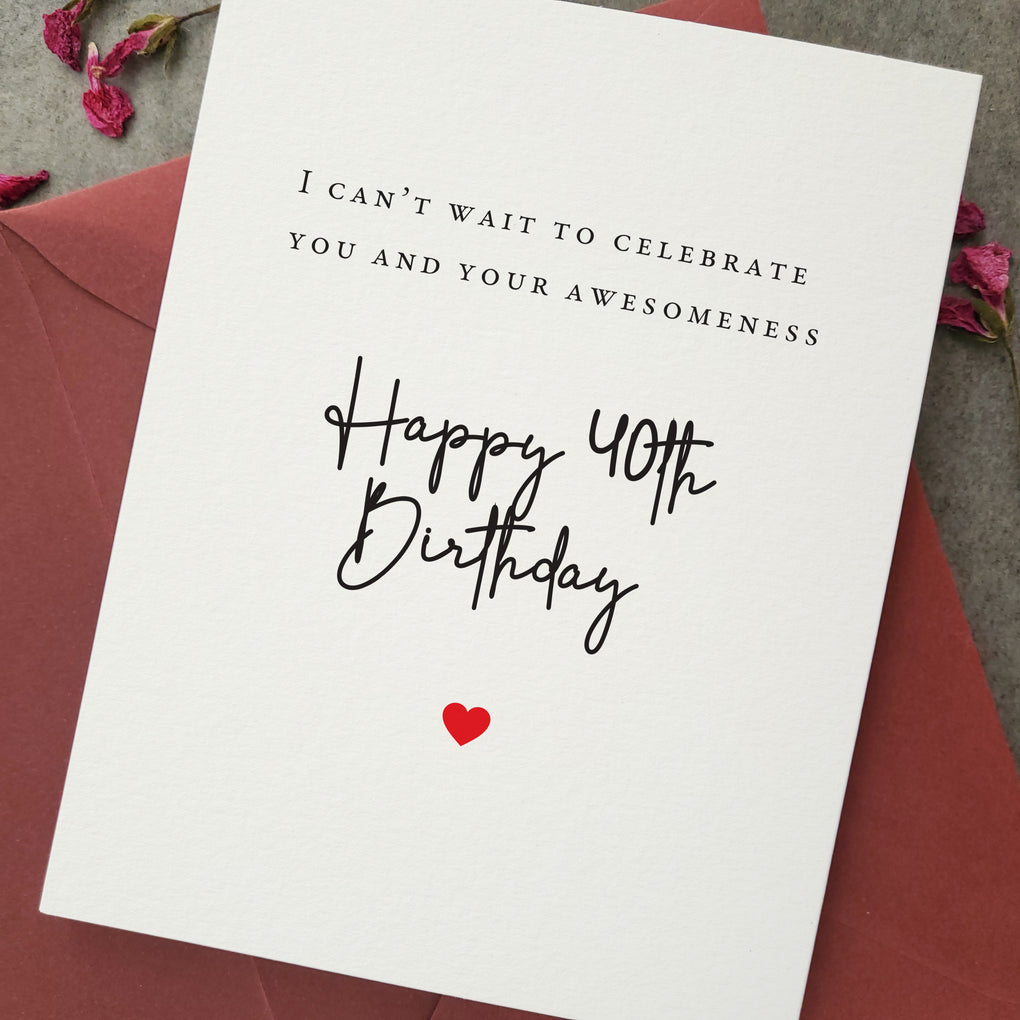 I can't wait to celebrate
you and your awesomeness
Happy 40th
Birthday